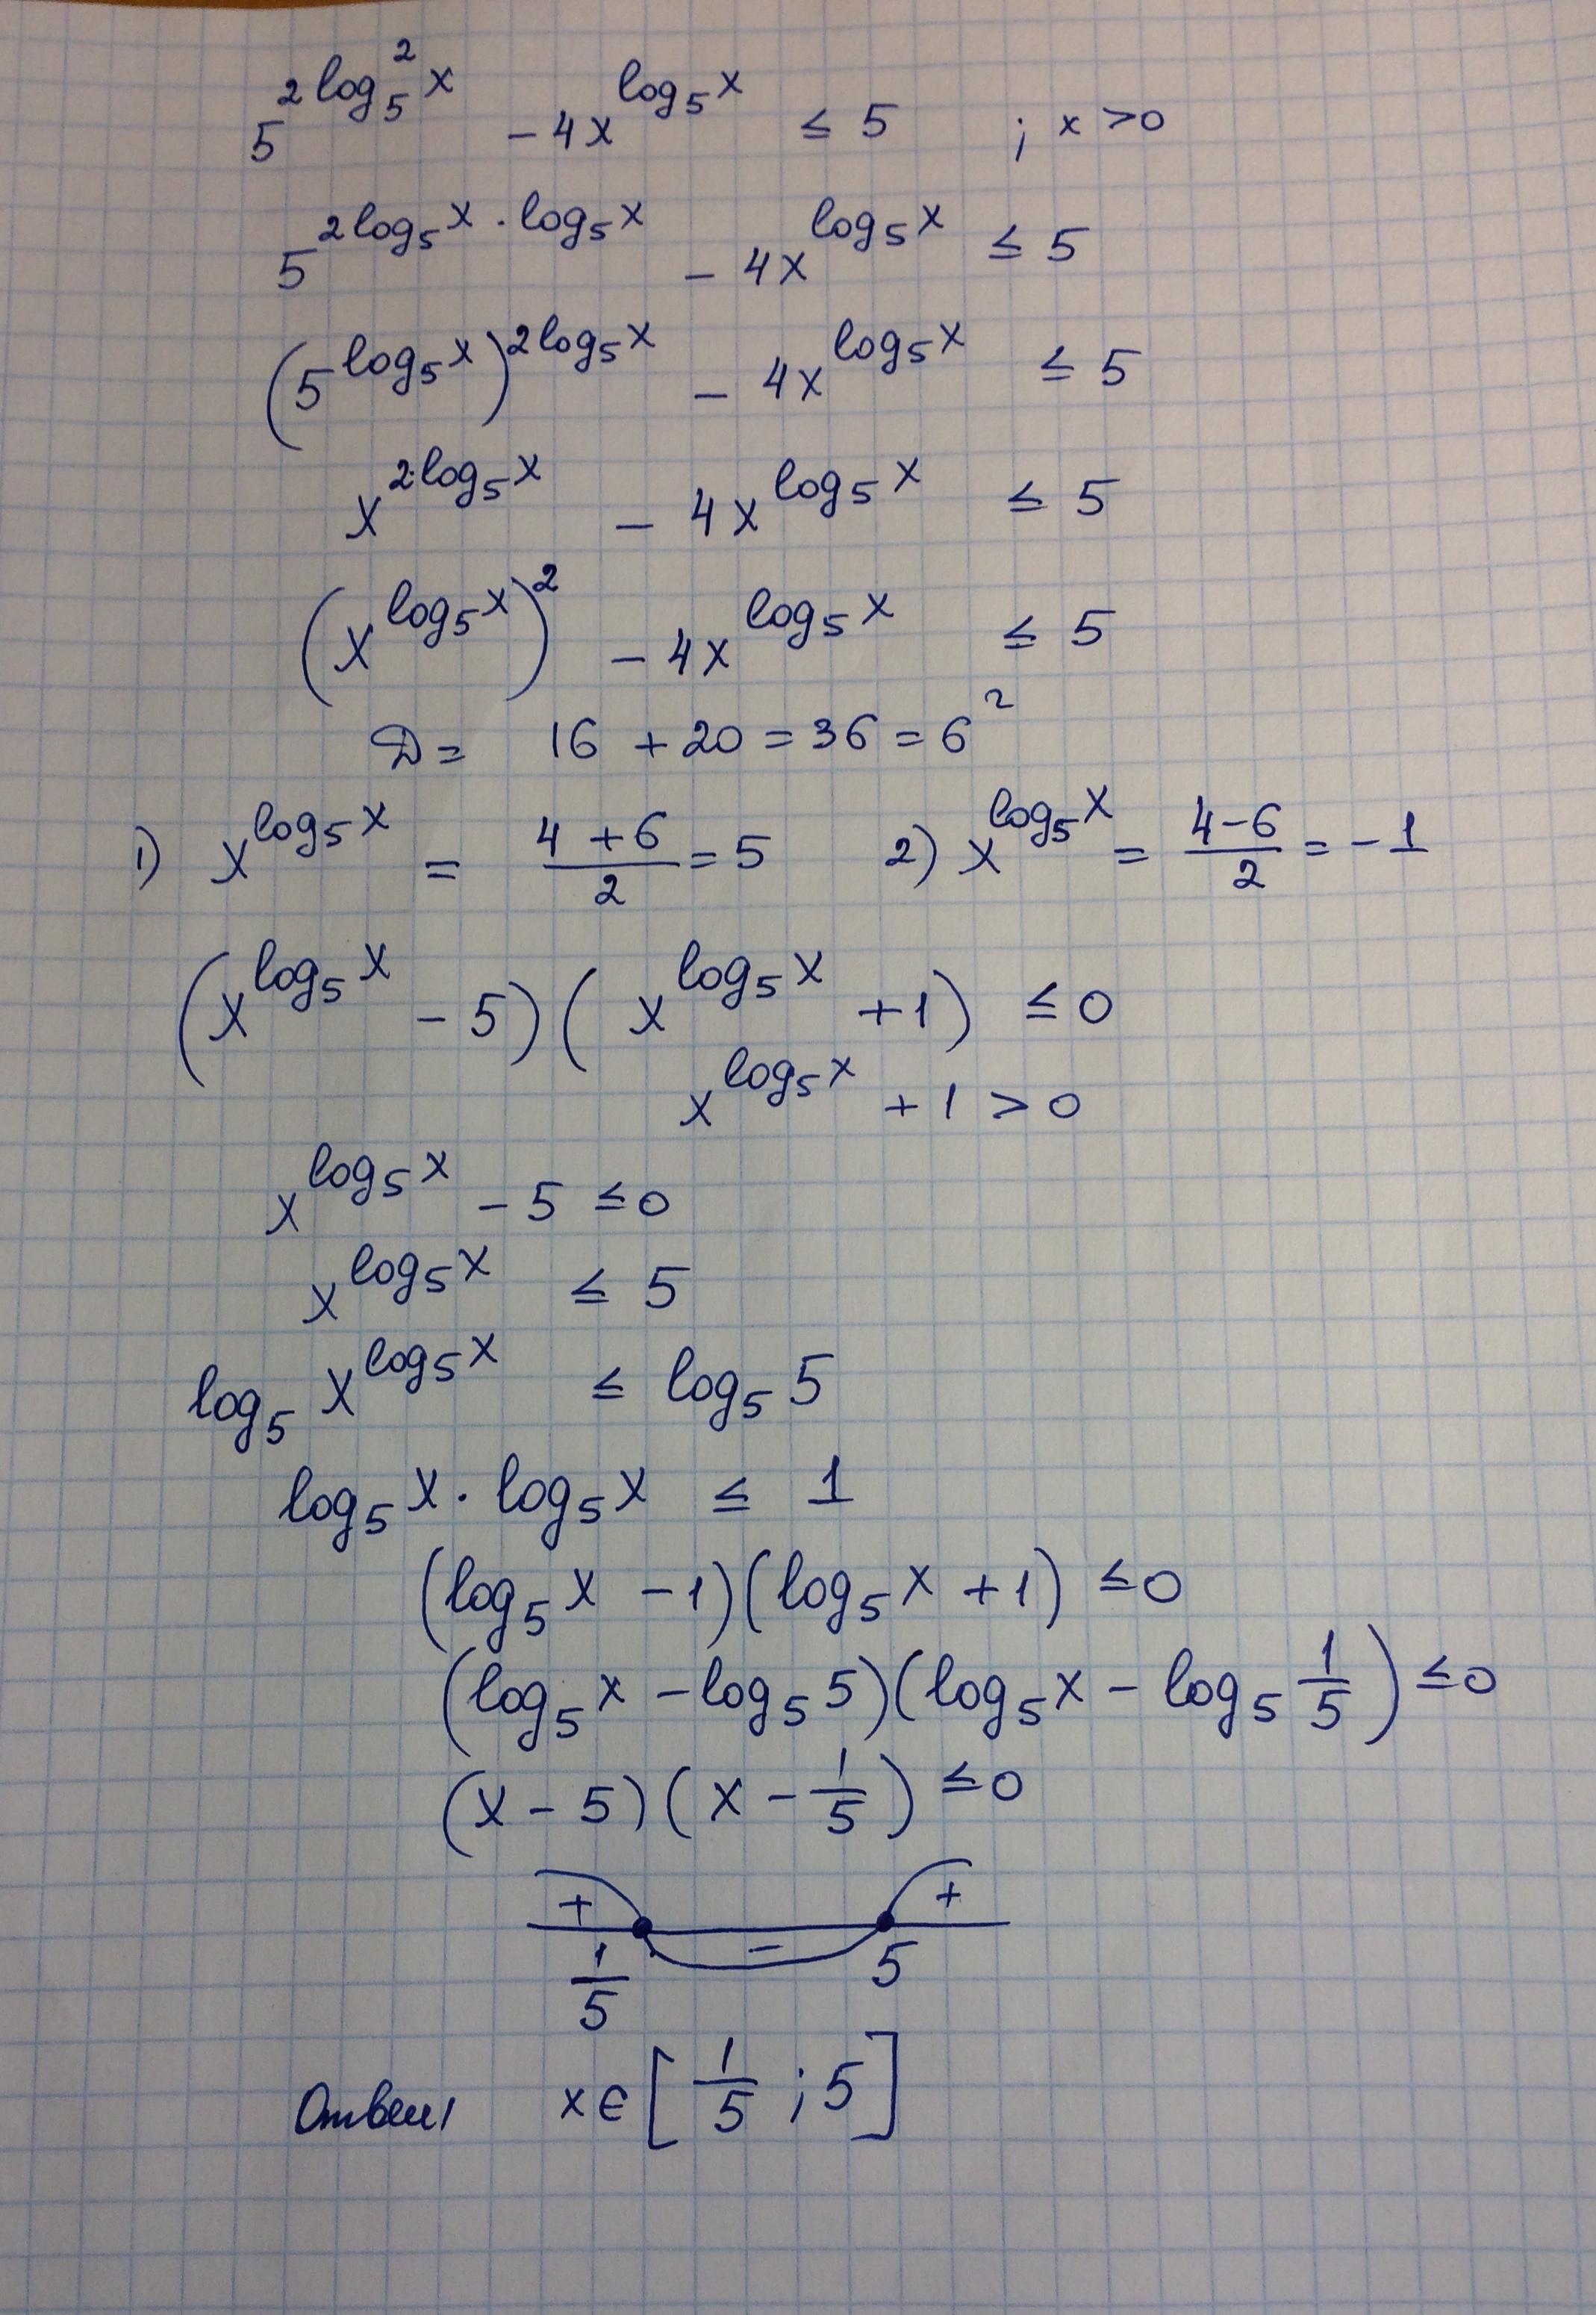 5^(2log₅²x) − 4x^(log₅x) ≤ 5 ; x > 0
5^(2log₅x · log₅x) − 4x^(log₅x) ≤ 5
(5^(log₅x))^(2log₅x) − 4x^(log₅x) ≤ 5
x^(2log₅x) − 4x^(log₅x) ≤ 5
(x^(log₅x))² − 4x^(log₅x) ≤ 5
D = 16 + 20 = 36 = 6²
1) x^(log₅x) = (4+6)/2 = 5 2) x^(log₅x) = (4−6)/2 = −1
(x^(log₅x) − 5)(x^(log₅x) + 1) ≤ 0
x^(log₅x) + 1 > 0
x^(log₅x) − 5 ≤ 0
x^(log₅x) ≤ 5
log₅ x^(log₅x) ≤ log₅ 5
log₅x · log₅x ≤ 1
(log₅x − 1)(log₅x + 1) ≤ 0
(log₅x − log₅5)(log₅x − log₅ 1/5) ≤ 0
(x − 5)(x − 1/5) ≤ 0
+ − +
1/5 5
Ответ x ∈ [1/5 ; 5]